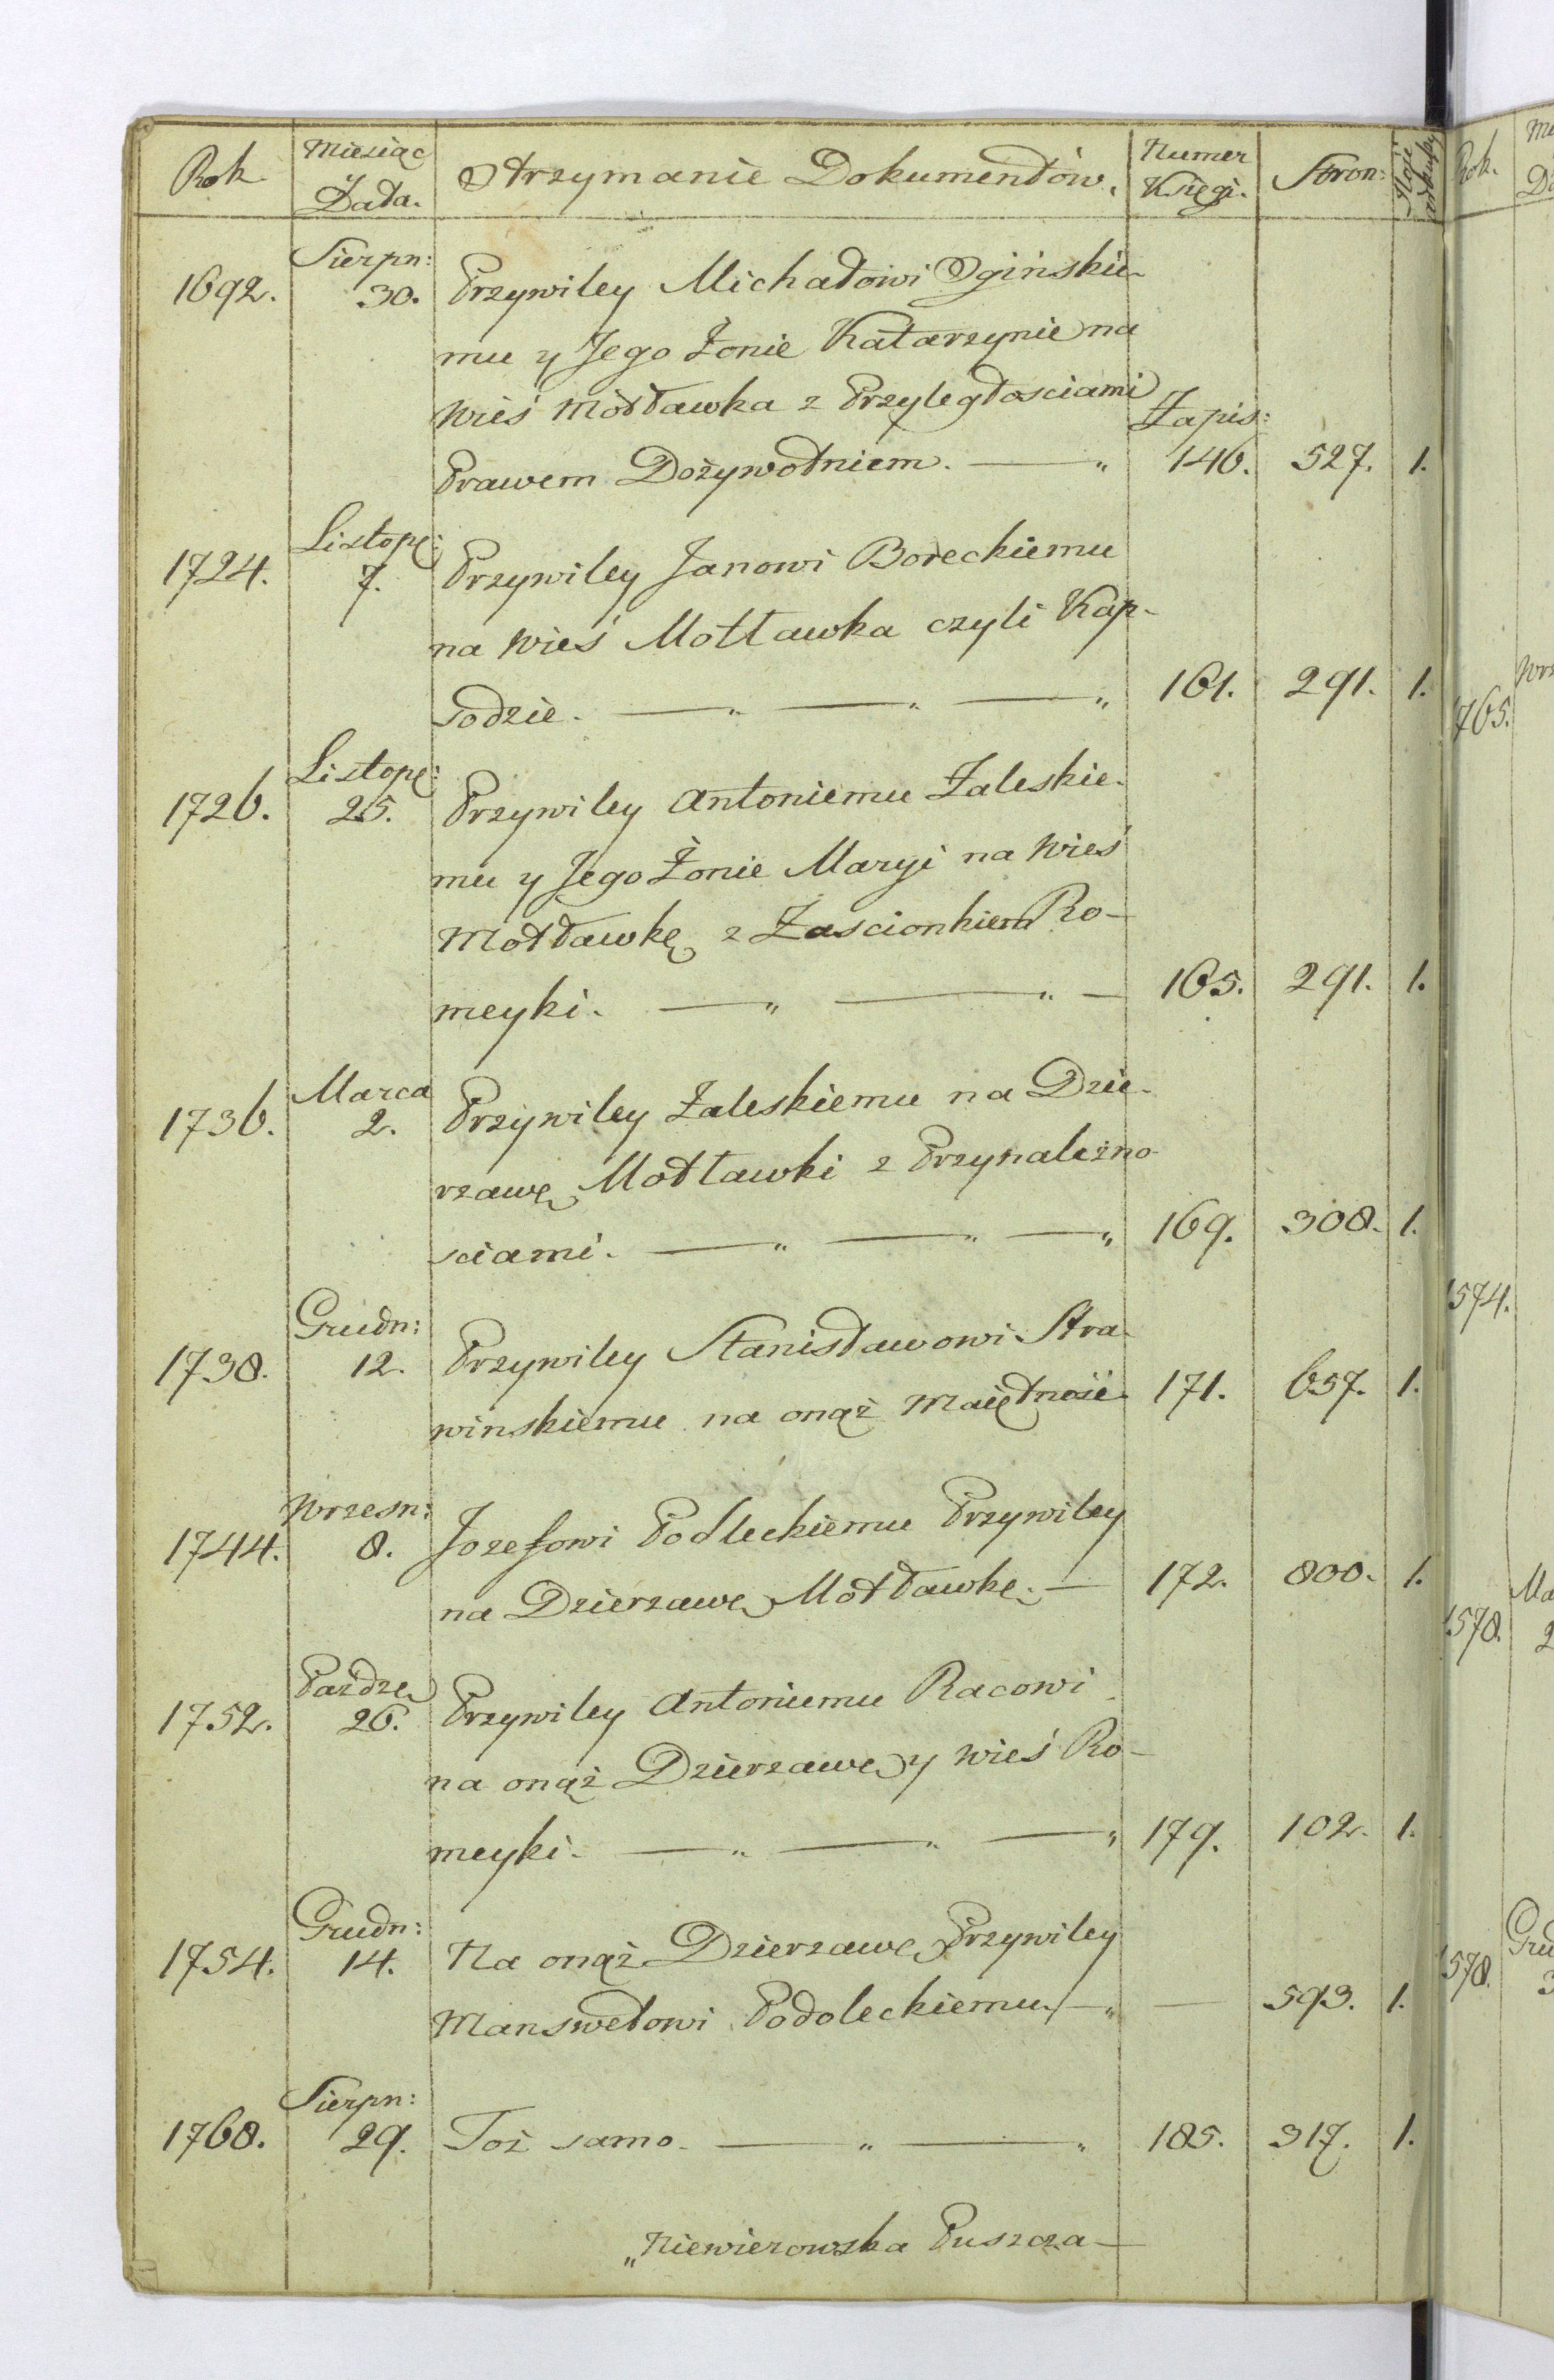 Rok. Miesiąc Data. Otrzymanie Dokumentów. Numer Księgi. Stron: Ilość arkuszy
1692. Sierpn: 30. Przywiley Michałowi Ogińskie-
mu y Jego Żonie Katarzynie na
Wieś Mołtawka z Przyległosciami
Prawem Dożywotniem. — „ Zapis: 146. 527. 1.
1724. Listopa: 7. Przywiley Janowi Boreckiemu
na Wieś Mołtawka czyli Kap-
sodzie. — „ — „ — „ 161. 291. 1.
1726. Listopa: 25. Przywiley Antoniemu Zaleskie-
mu y Jego Żonie Maryi na Wieś
Mołtawkę z Zascionkiem Ro-
meyki. — „ — „ — 165. 291. 1.
1736. Marca 2. Przywiley Zaleskiemu na Dzie-
rzawę Mołtawki z Przynalezno-
sciami. — „ — „ — „ 169. 308. 1.
1738. Grudn: 12. Przywiley Stanisławowi Stra-
winskiemu na onąż Maiętność. 171. 657. 1.
1744. Wrzesn: 8. Jozefowi Podleckiemu Przywiley
na Dzierzawę Mołtawkę. — 172. 800. 1.
1752. Pazdze 26. Przywiley Antoniemu Racowi
na onąż Dzierzawę y Wieś Ro-
meyki. — „ — „ — „ 179. 102. 1.
1754. Grudn: 14. Na onąż Dzierzawę Przywiley
Manswetowi Podoleckiemu. — „ — 593. 1.
1768. Sierpn: 29. Toż samo. — „ — „ 185. 317. 1.
„Niewierowska Puszcza —
Rok.
1765.
1574.
1578.
1578.